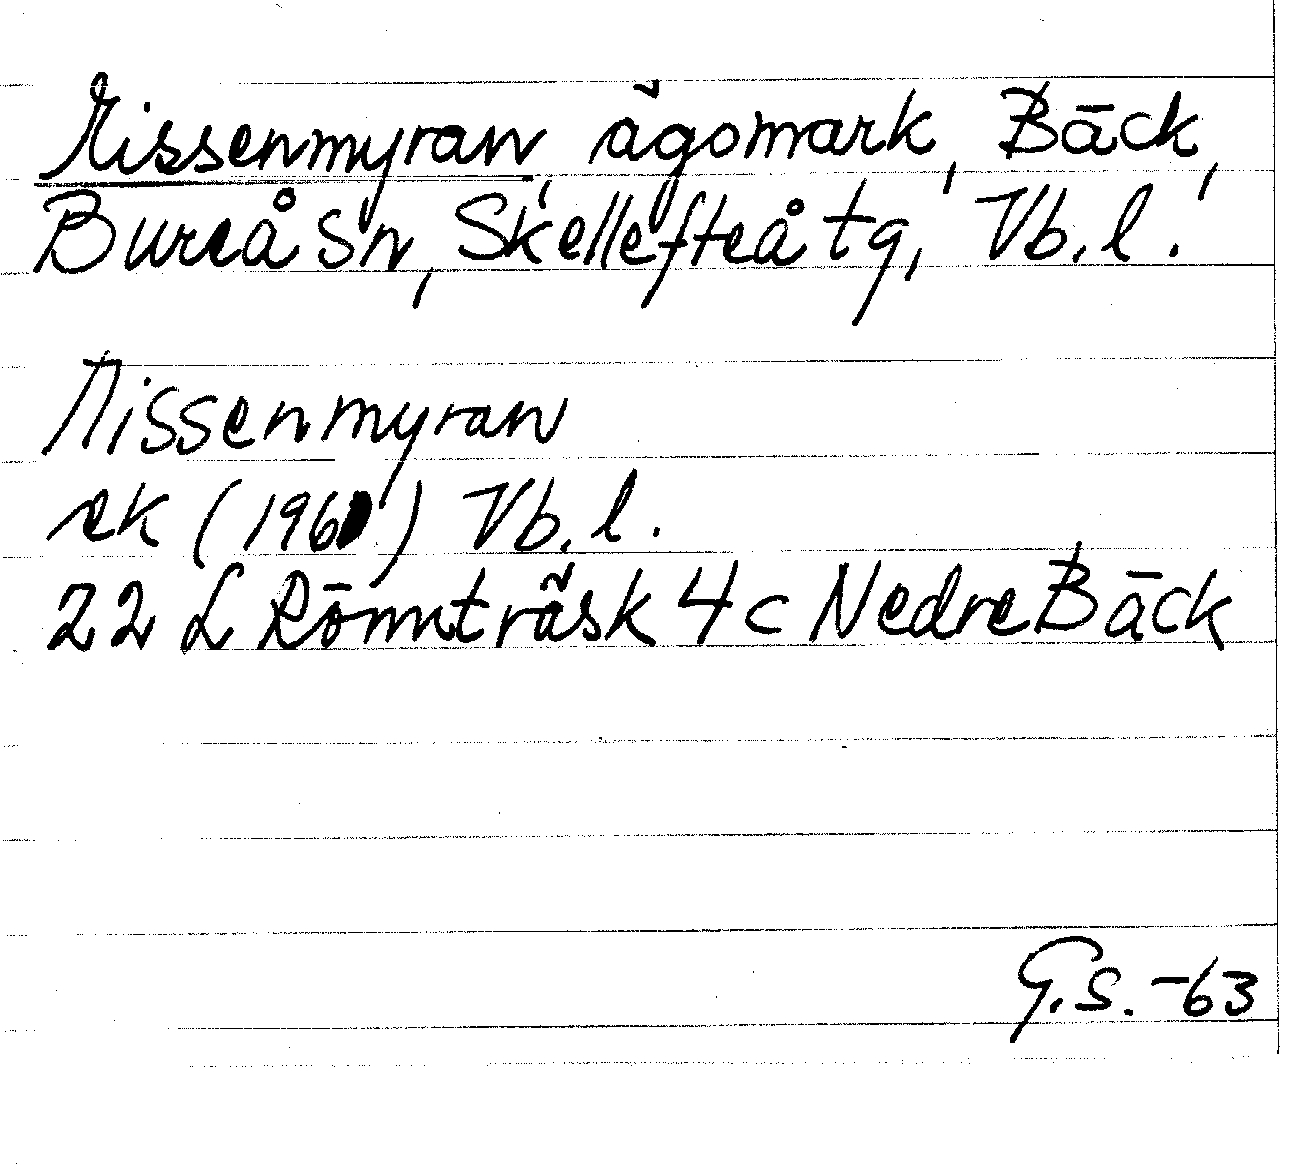 Nissenmyran, ägomark, Bäck,
Bureå sn, Skellefteå tg, Vb.l.
Nissenmyran
ek (1961) Vb.l.
22 L Rönnträsk 4 c Nedre Bäck
G.S. -63